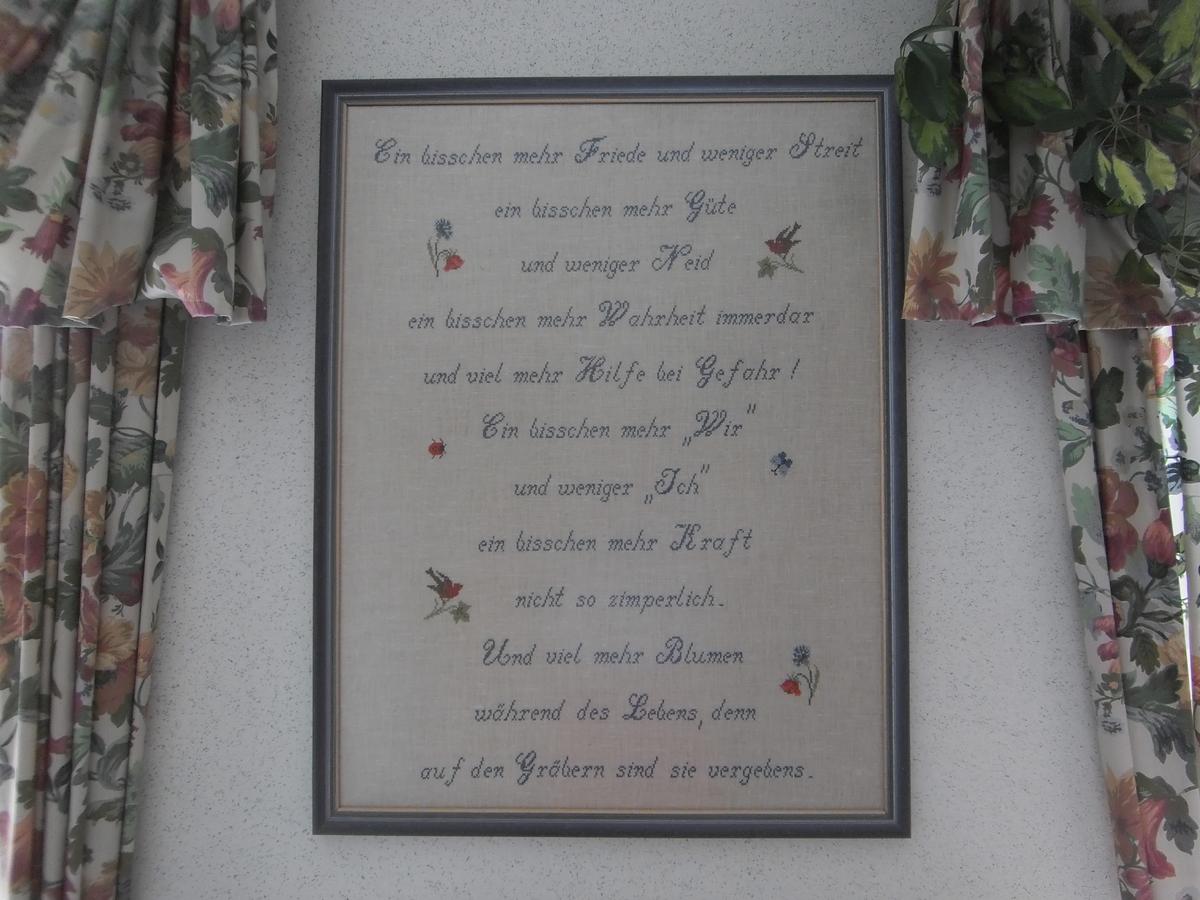 Ein bisschen mehr Friede und weniger Streit
ein bisschen mehr Güte
und weniger Neid
ein bisschen mehr Wahrheit immerdar
und viel mehr Hilfe bei Gefahr !
Ein bisschen mehr „Wir"
und weniger „Ich"
ein bisschen mehr Kraft
nicht so zimperlich.
Und viel mehr Blumen
während des Lebens, denn
auf den Gräbern sind sie vergebens.